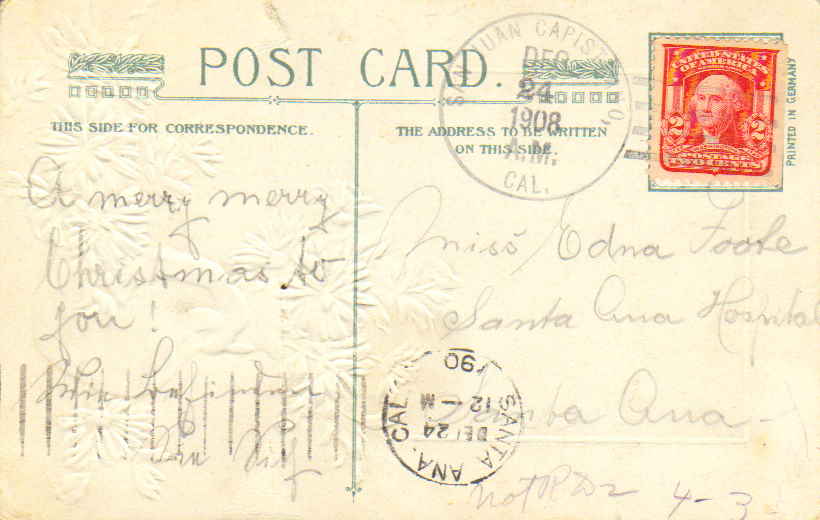 POST CARD.
THIS SIDE FOR CORRESPONDENCE.
THE ADDRESS TO BE WRITTEN
ON THIS SIDE.
SAN JUAN CAPISTRANO,
DEC
24
1908
A.M.
CAL.
UNITED STATES
OF AMERICA
2 2
POSTAGE
TWO CENTS
PRINTED IN GERMANY
A merry merry
Christmas to
you!
Miss Edna Foote
Santa Ana Hospital
Santa Ana
SANTA ANA, CAL
DEC 24
12 - M
190
Not 4-3